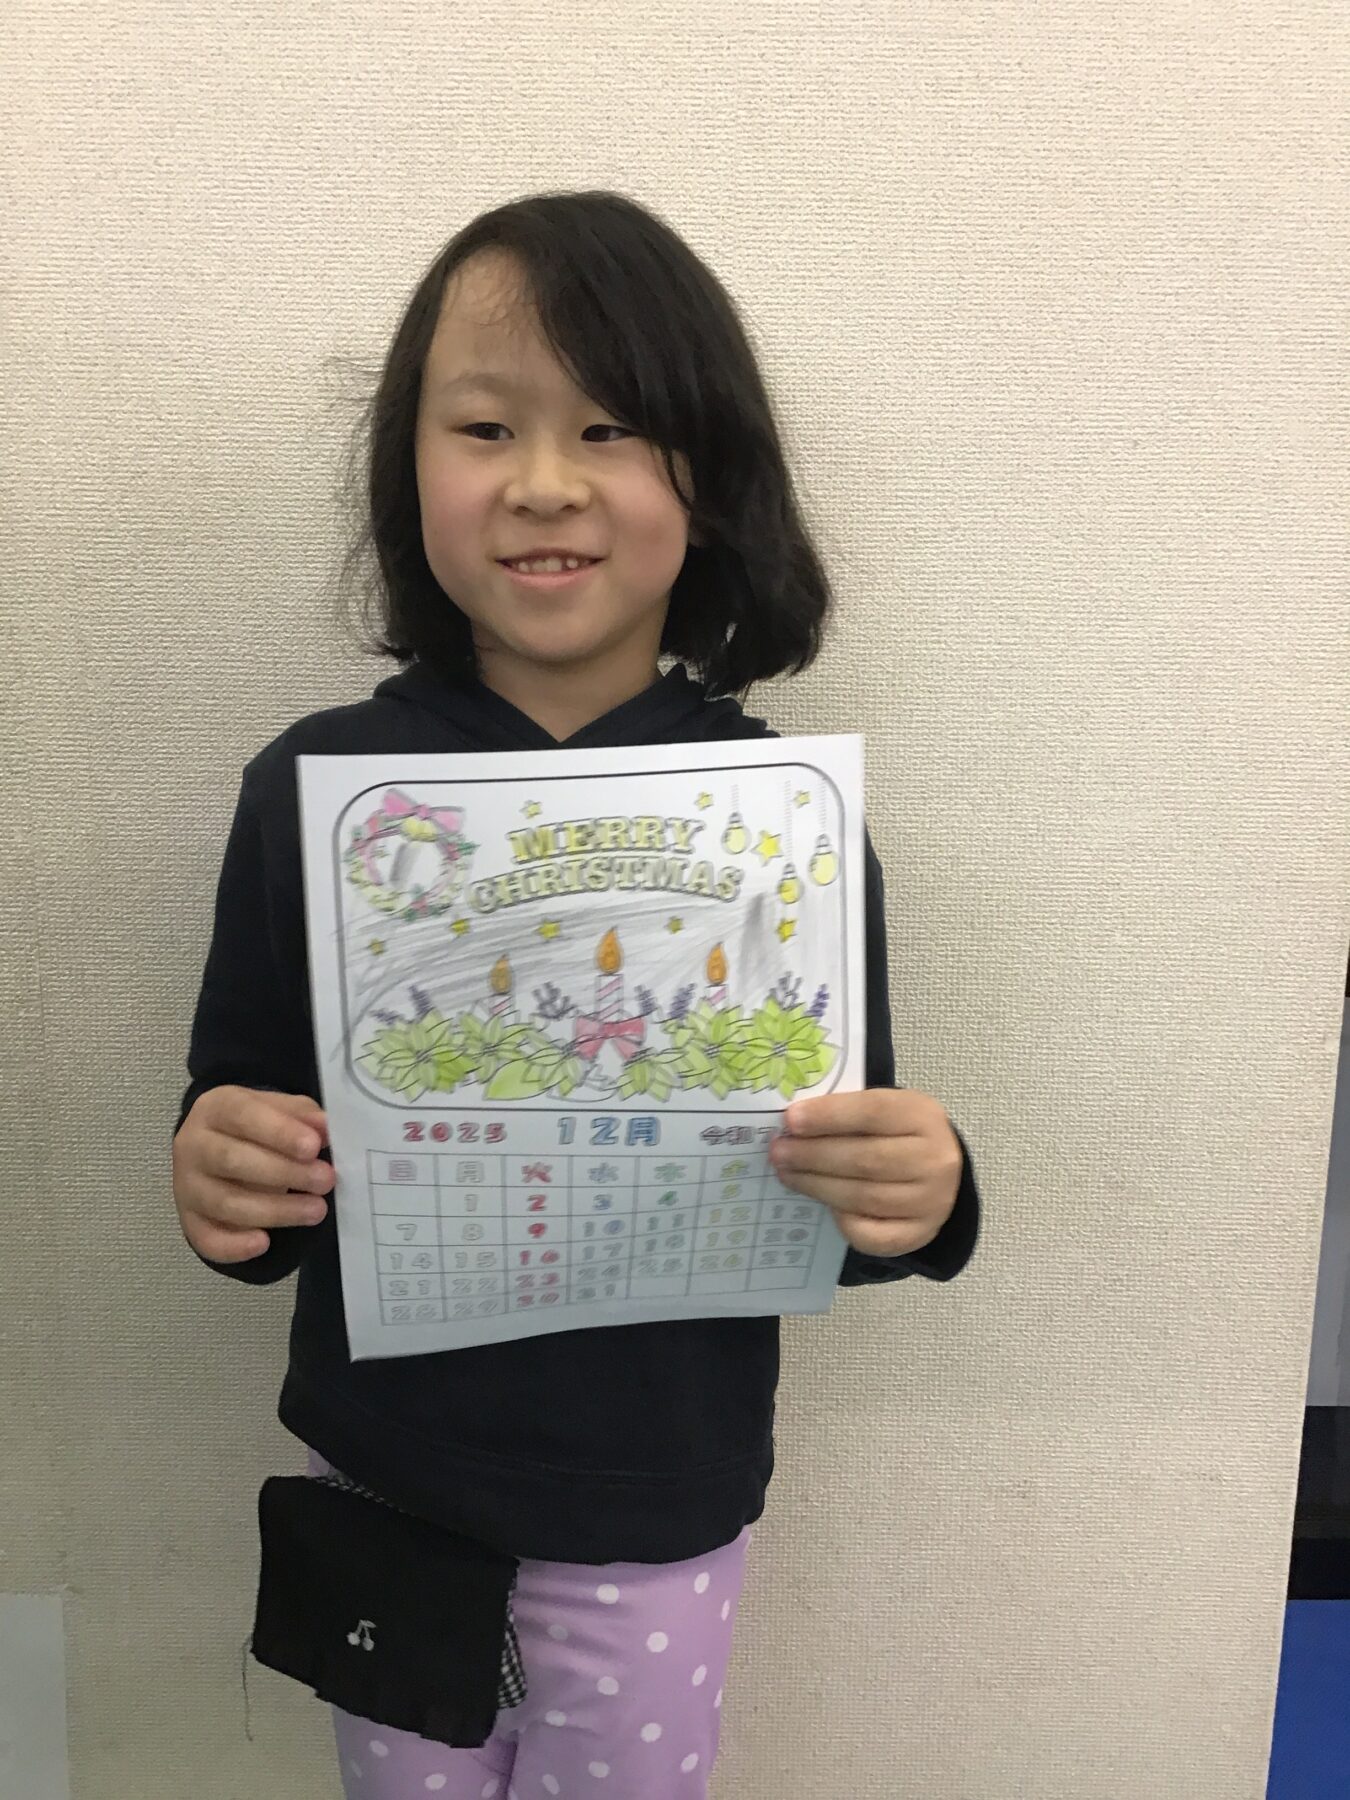 MERRY
CHRISTMAS
2025 12月 令和7
日 月 火 水 木 金
1 2 3 4 5
7 8 9 10 11 12 13
14 15 16 17 18 19 20
21 22 23 24 25 26 27
28 29 30 31